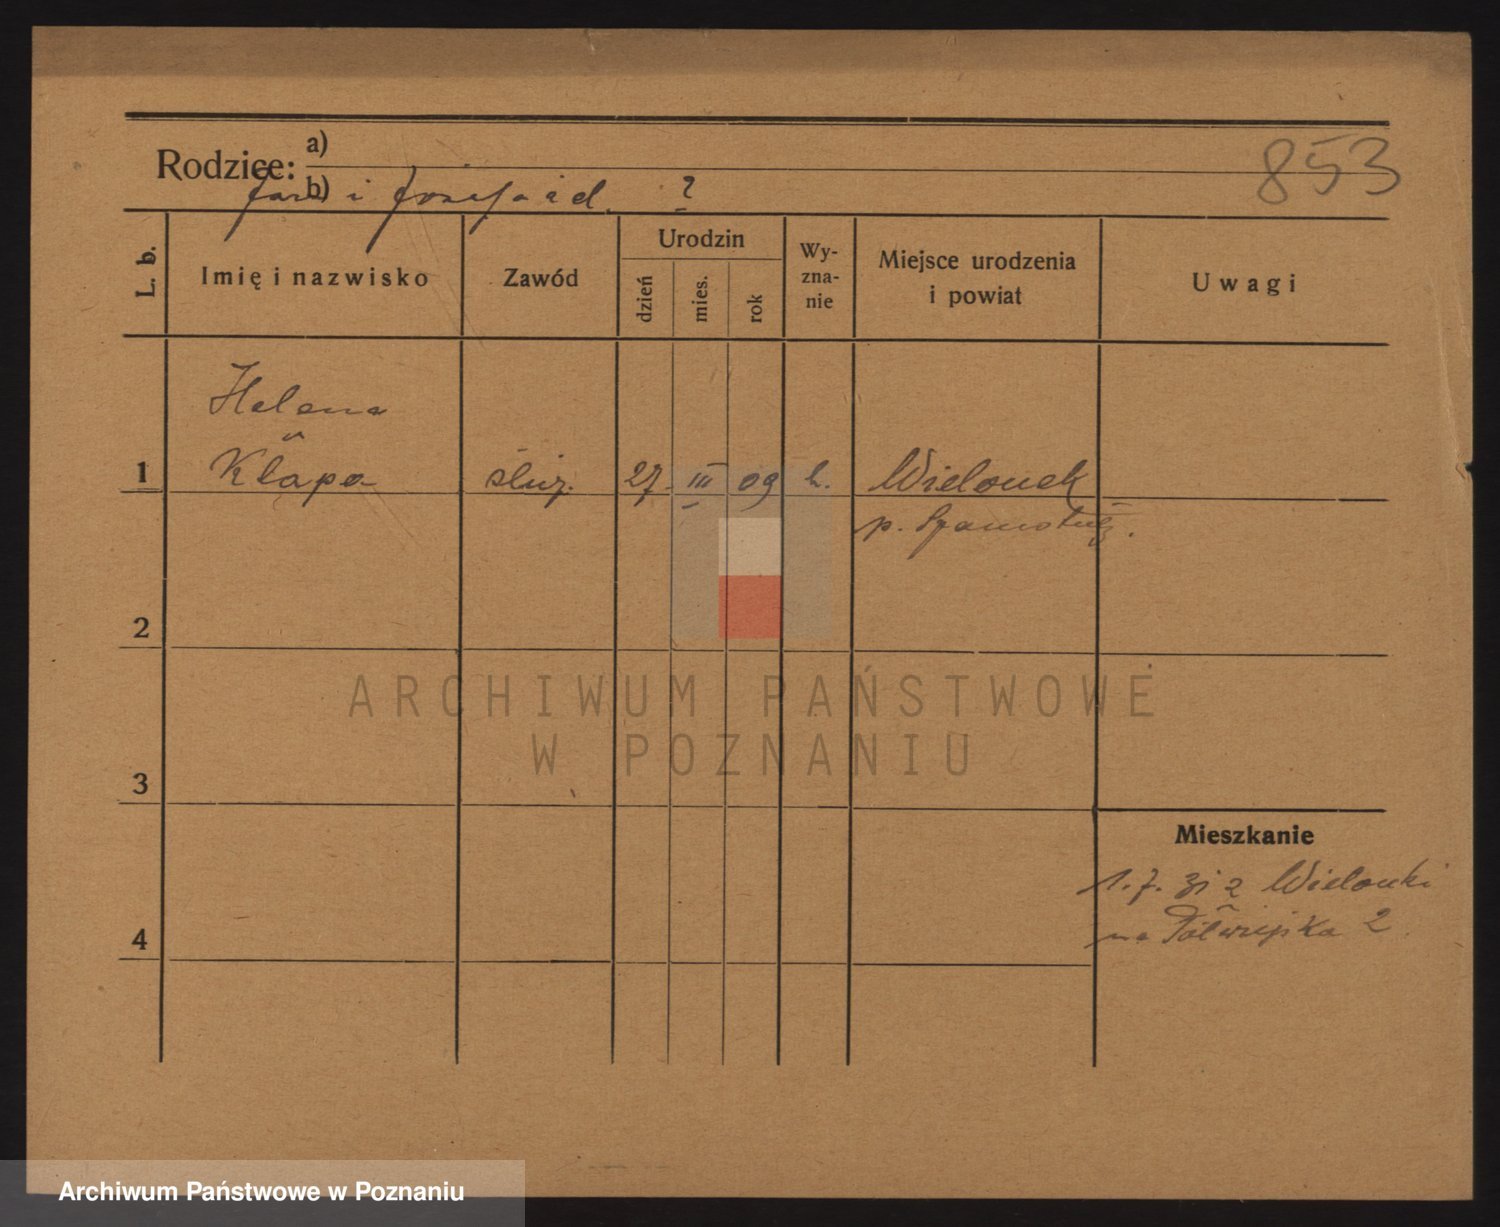 853
Rodzice: a)
b)
Jan i Józefa z d. ?
L. b.
Imię i nazwisko
Zawód
Urodzin
dzień
mies.
rok
Wy-
zna-
nie
Miejsce urodzenia
i powiat
Uwagi
Helena
1 Kłapa służ. 27 III 09 k. Wielonek
p. Szamotuły.
2
ARCHIWUM PAŃSTWOWE
W POZNANIU
3
Mieszkanie
1. 7. 31 z Wielonki
na Półwiejska 2.
4
Archiwum Państwowe w Poznaniu